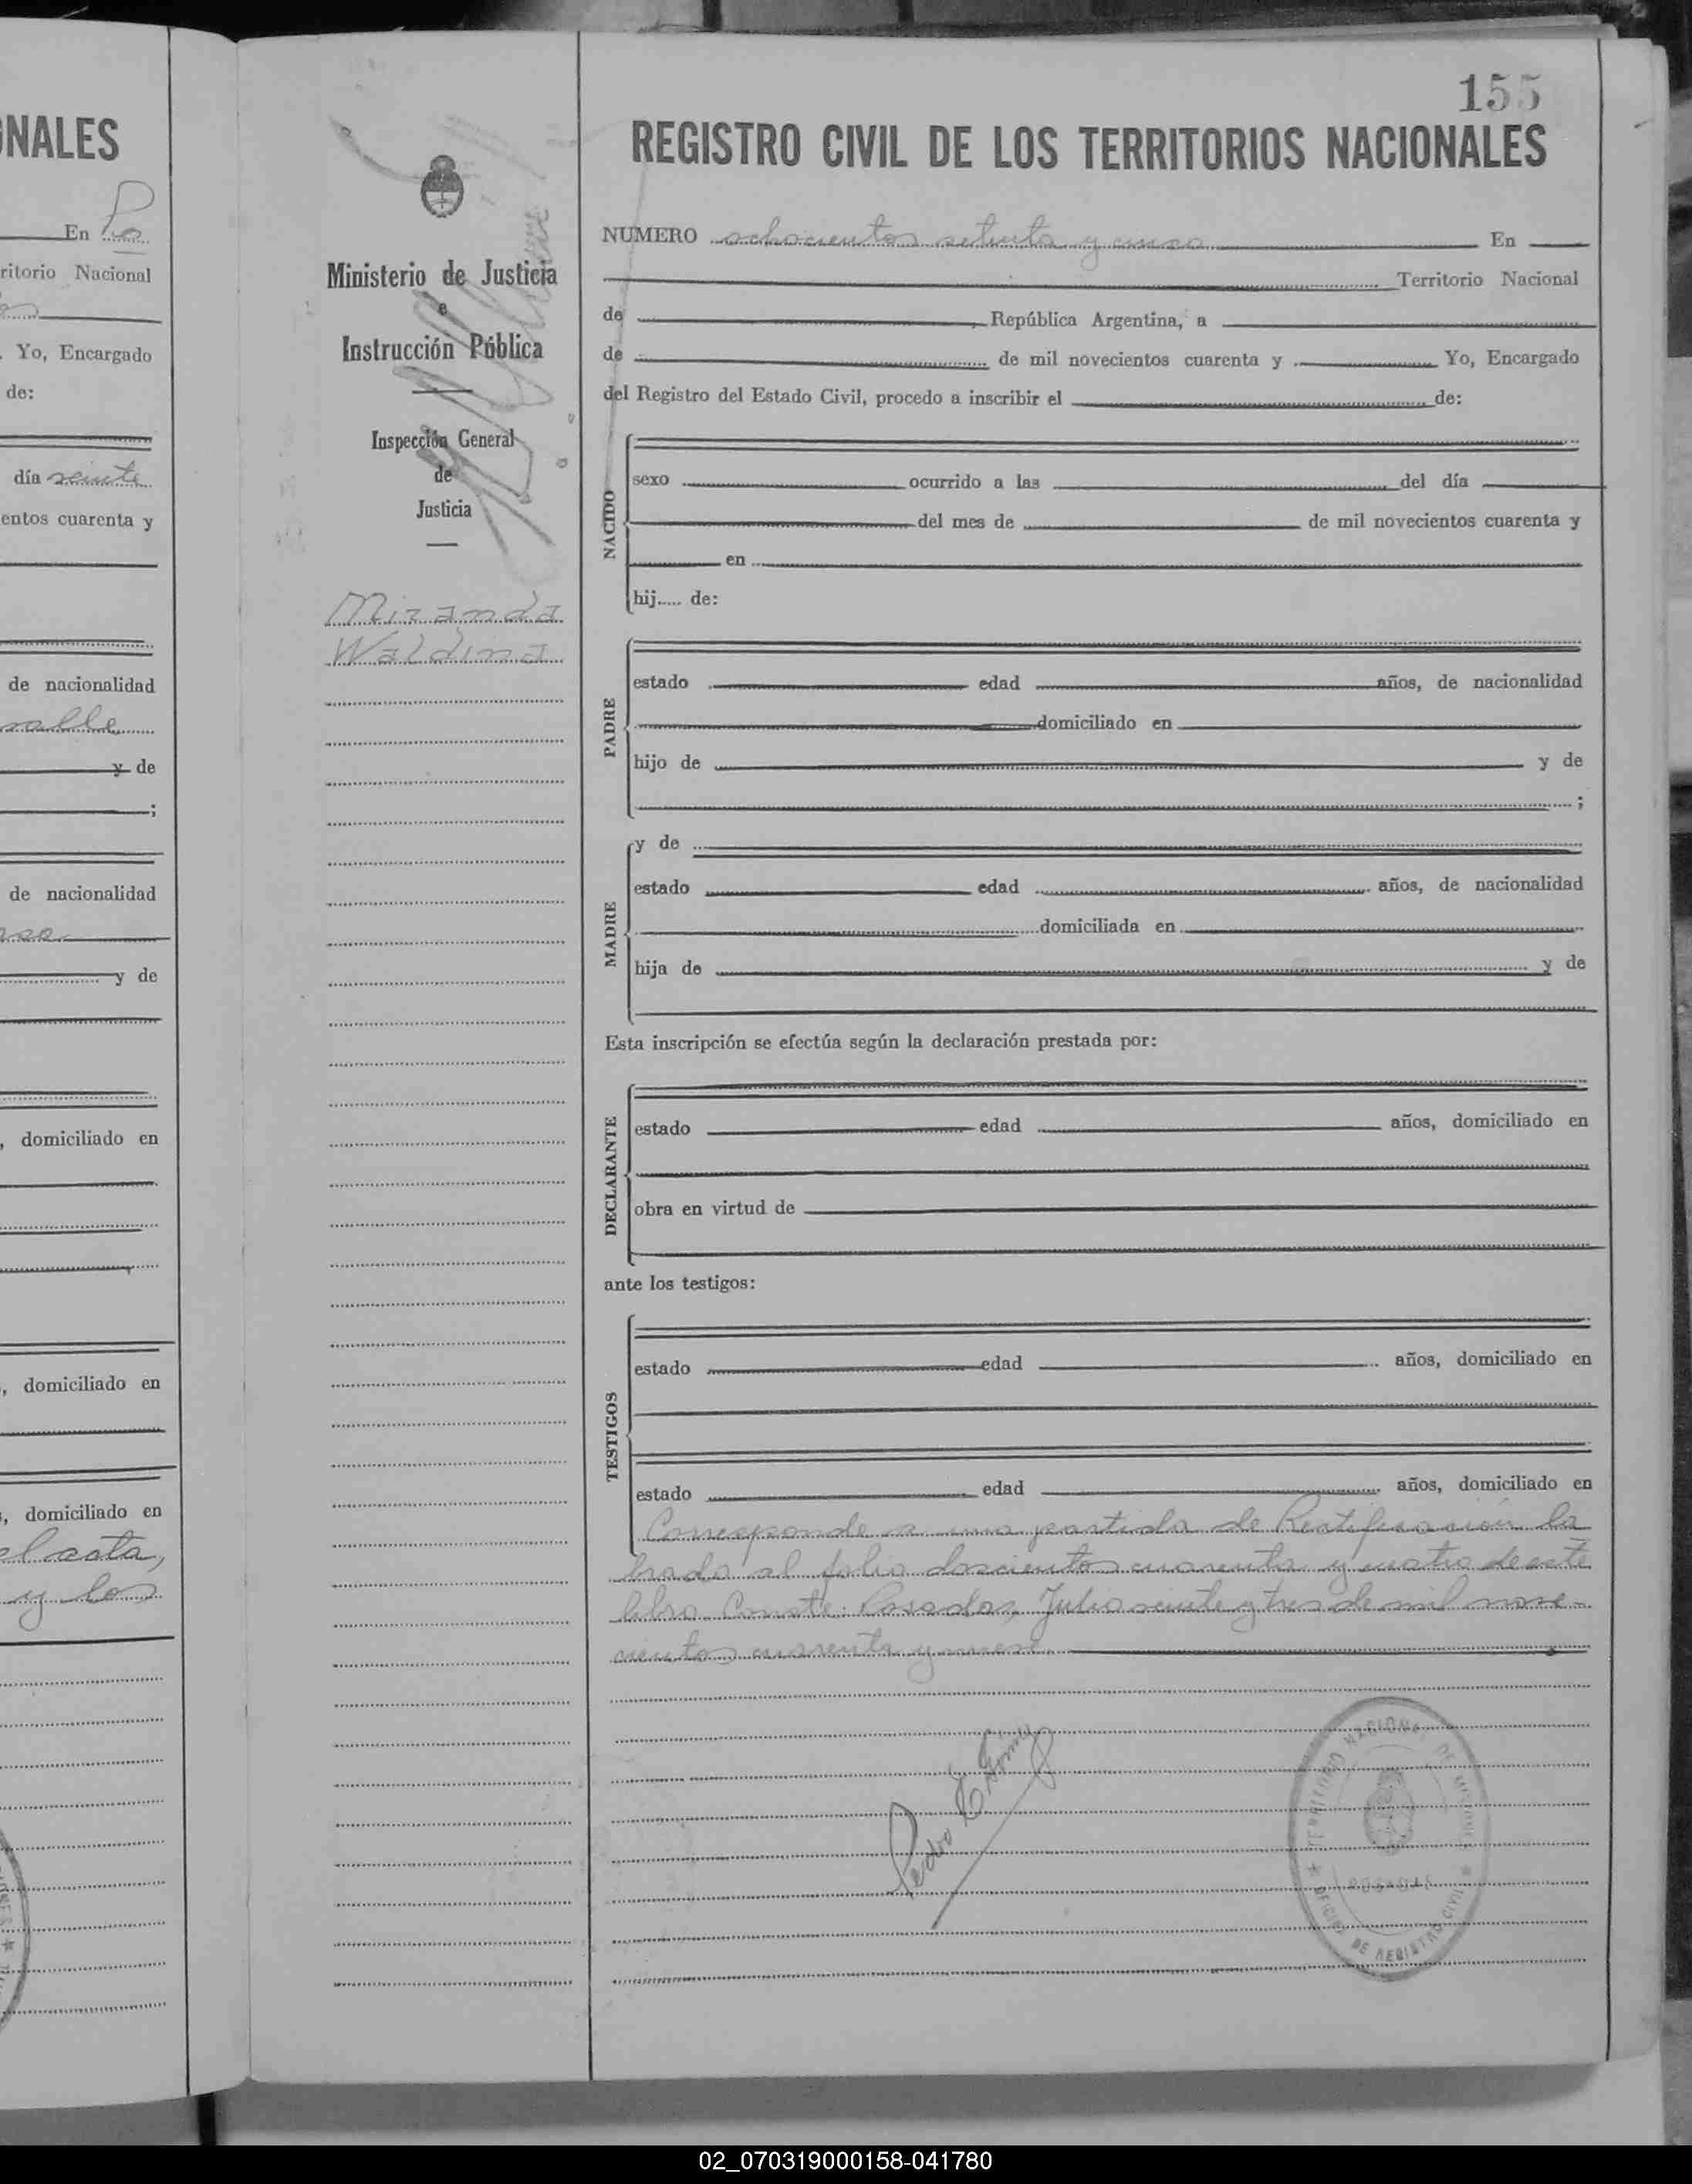 NALES
En Po
ritorio Nacional
. Yo, Encargado
de:
día veinte
entos cuarenta y
de nacionalidad
valle
y de
;
de nacionalidad
y de
, domiciliado en
, domiciliado en
, domiciliado en
el acta,
y los
155
REGISTRO CIVIL DE LOS TERRITORIOS NACIONALES
Ministerio de Justicia
e
Instrucción Pública
Inspección General
de
Justicia
Miranda
Waldina
NUMERO ochocientos setenta y cinco En
Territorio Nacional
de , República Argentina, a
de de mil novecientos cuarenta y Yo, Encargado
del Registro del Estado Civil, procedo a inscribir el de:
NACIDO
sexo ocurrido a las del día
del mes de de mil novecientos cuarenta y
en
hij..... de:
PADRE
estado edad años, de nacionalidad
domiciliado en
hijo de y de
;
MADRE
y de
estado edad años, de nacionalidad
domiciliada en
hija de y de
Esta inscripción se efectúa según la declaración prestada por:
DECLARANTE
estado edad años, domiciliado en
obra en virtud de
ante los testigos:
TESTIGOS
estado edad años, domiciliado en
estado edad años, domiciliado en
Corresponde a una partida de Rectificación la
brada al folio doscientos cuarenta y cuatro de este
libro. Conste. Posadas, Julio veinte y tres de mil nove-
cientos cuarenta y nueve.
Pedro E. Gómez
TERRITORIO NACIONAL DE MISIONES
POSADAS
OFICINA DE REGISTRO CIVIL
02_070319000158-041780